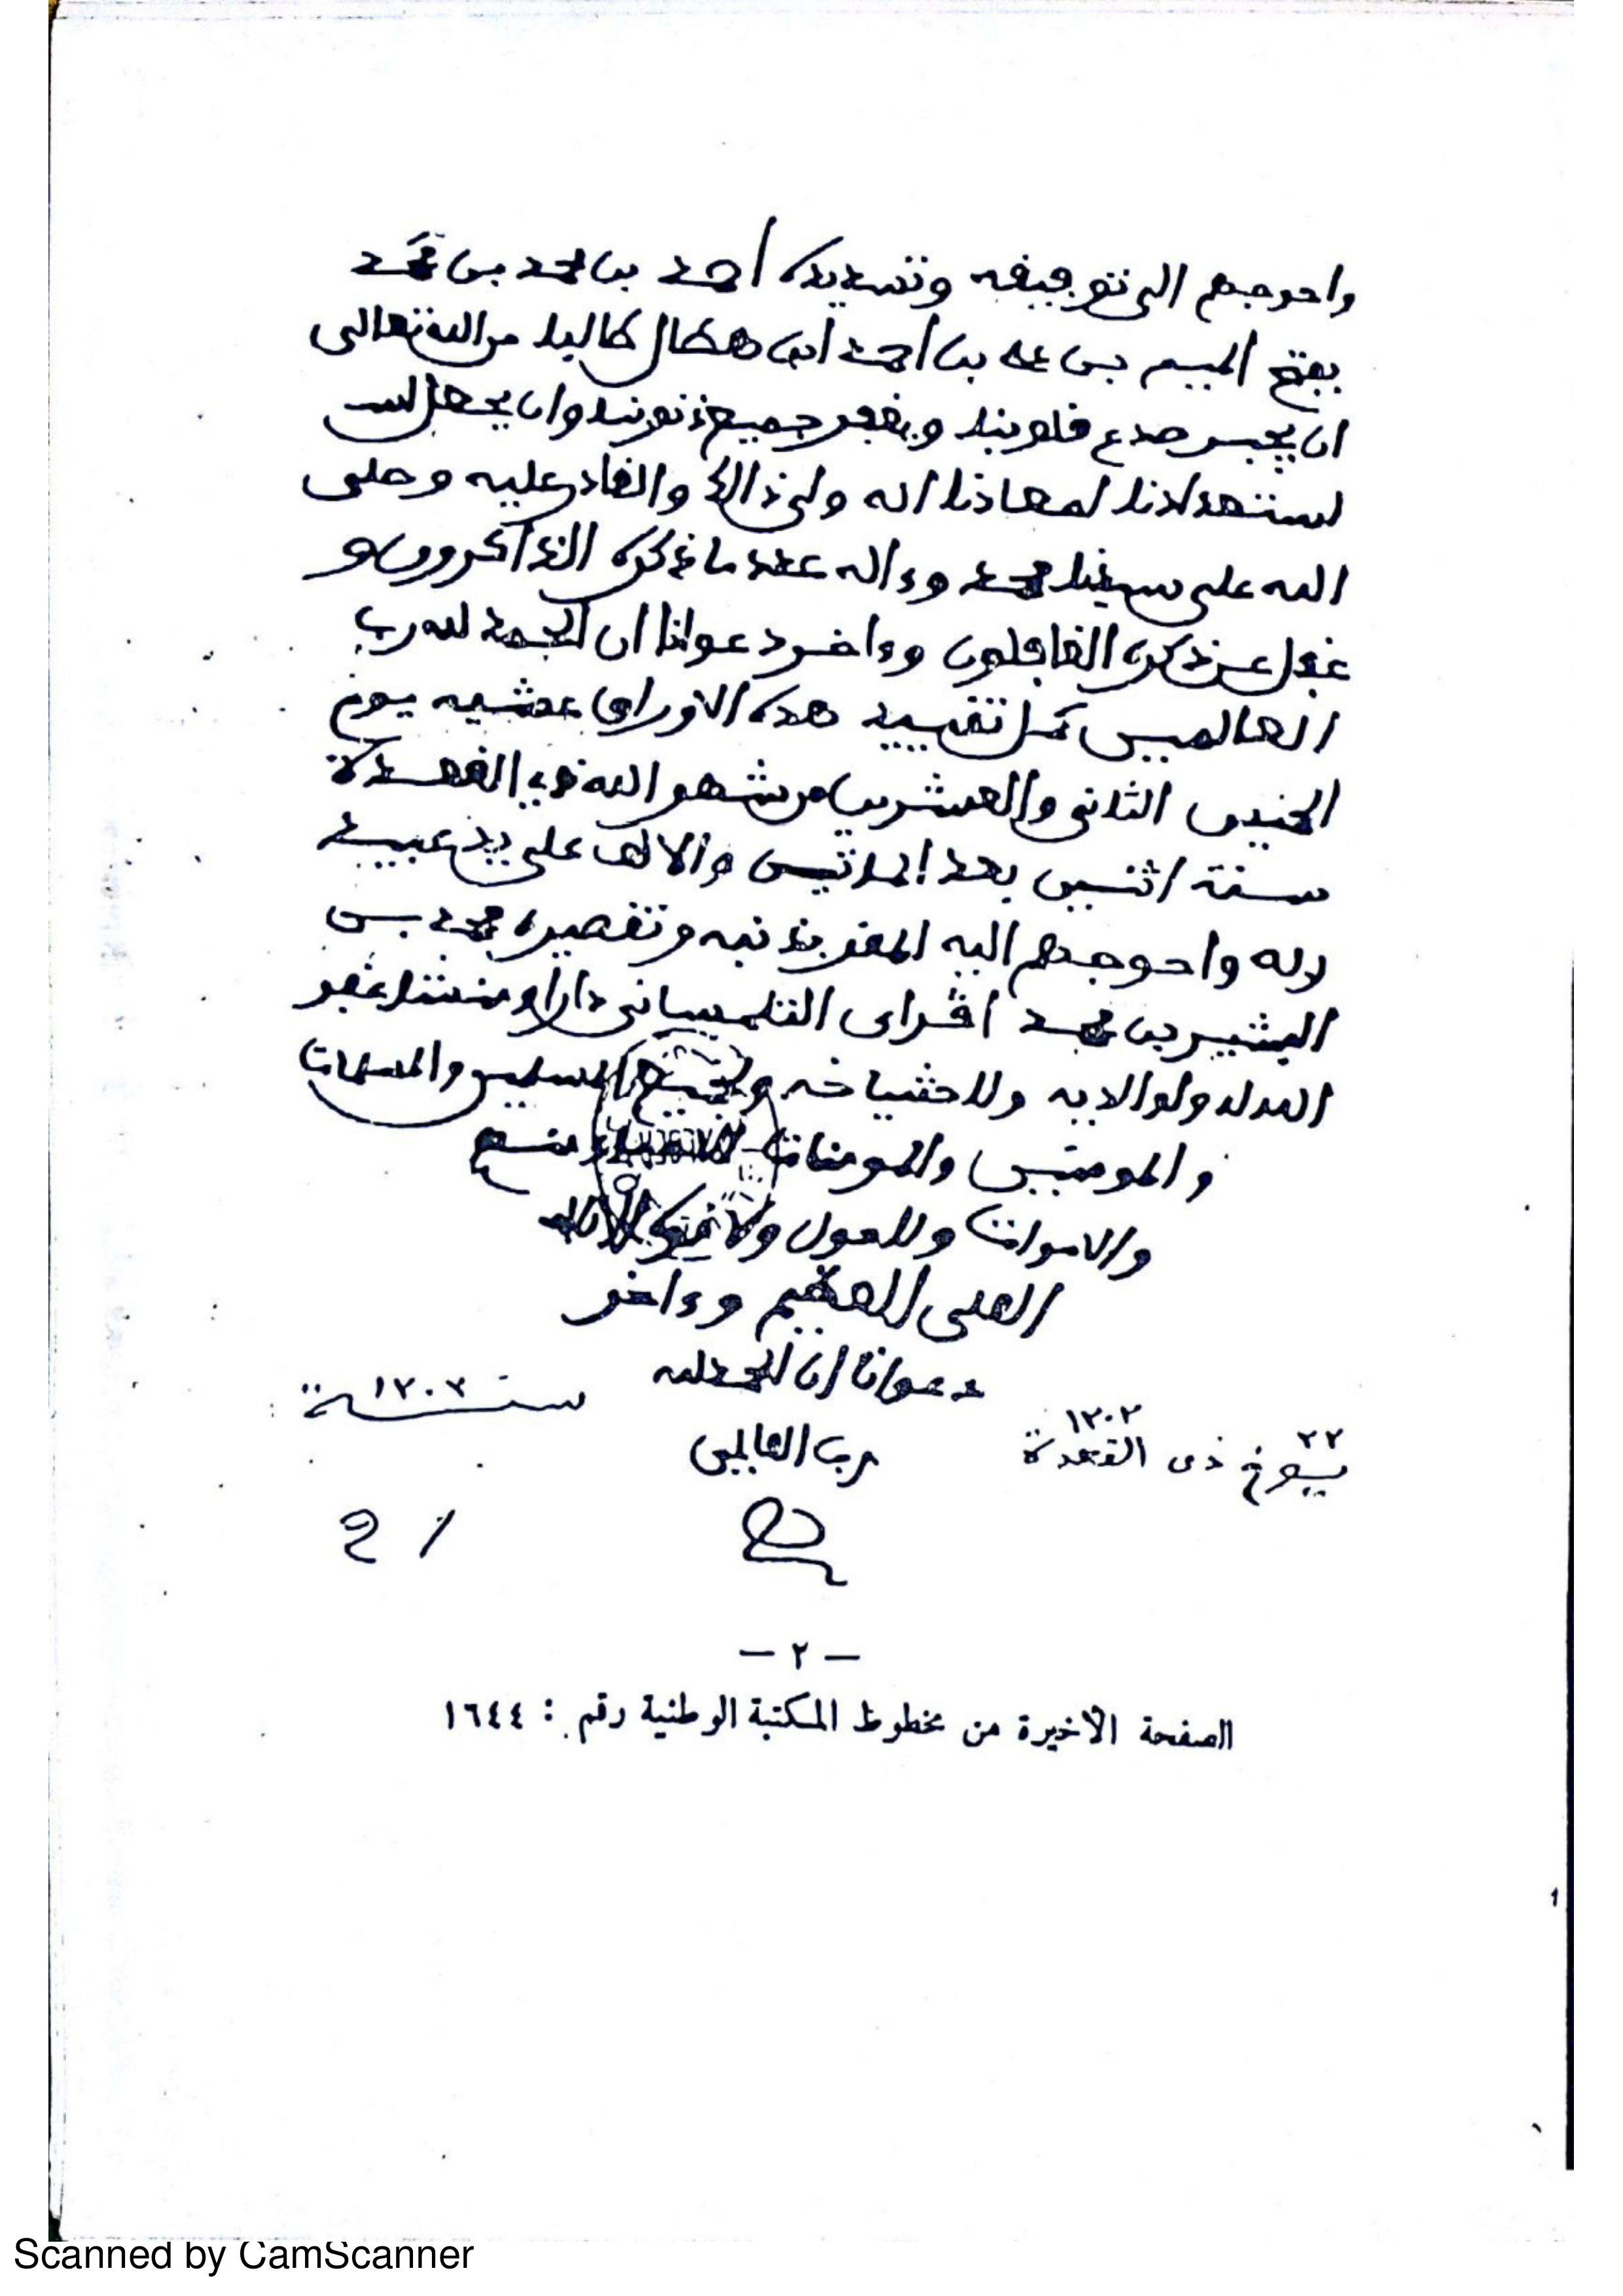 واحوجهم الى توفيقه وتسديده احمد بن محمد بن محمد
بفتح الميم بن على بن احمد ابن هطال طالبا من الله تعالى
ان يجبر صدع قلوبنا ويغفر جميع ذنوبنا وان يجعل لنـ
استعدادنا لمعادنا انه ولي ذالك والقادر عليه وصلى
الله على سيدنا محمد وءاله عدد ما ذكره الذاكرون و
غفل عن ذكره الغافلون وءاخر دعوانا ان الحمد لله رب
العالمين كمل تقييد هذه الاوراق عشية يوم
الخميس الثاني والعشرين من شهر الله ذي القعدة
سنة اثنين بعد المائتين والالف على يد عبيد
ربه واحوجهم اليه المقر بذنبه وتقصيره محمد بن
البشير بن محمد التلمساني دارا ومنشئا غفر
الله له ولوالديه ولاشياخه ولجميع المسلمين والمسلمات
والمومنين والمومنات الاحياء منهم
والاموات ولا حول ولا قوة الا بالله
العلي العظيم وءاخر
دعوانا ان الحمد لله
رب العالمين
سنة ١٢٠٢
٢٢ يوم ذى القعدة ١٢٠٢
— ٢ —
الصفحة الأخيرة من مخطوط المكتبة الوطنية رقم : ١٦٤٤
Scanned by CamScanner